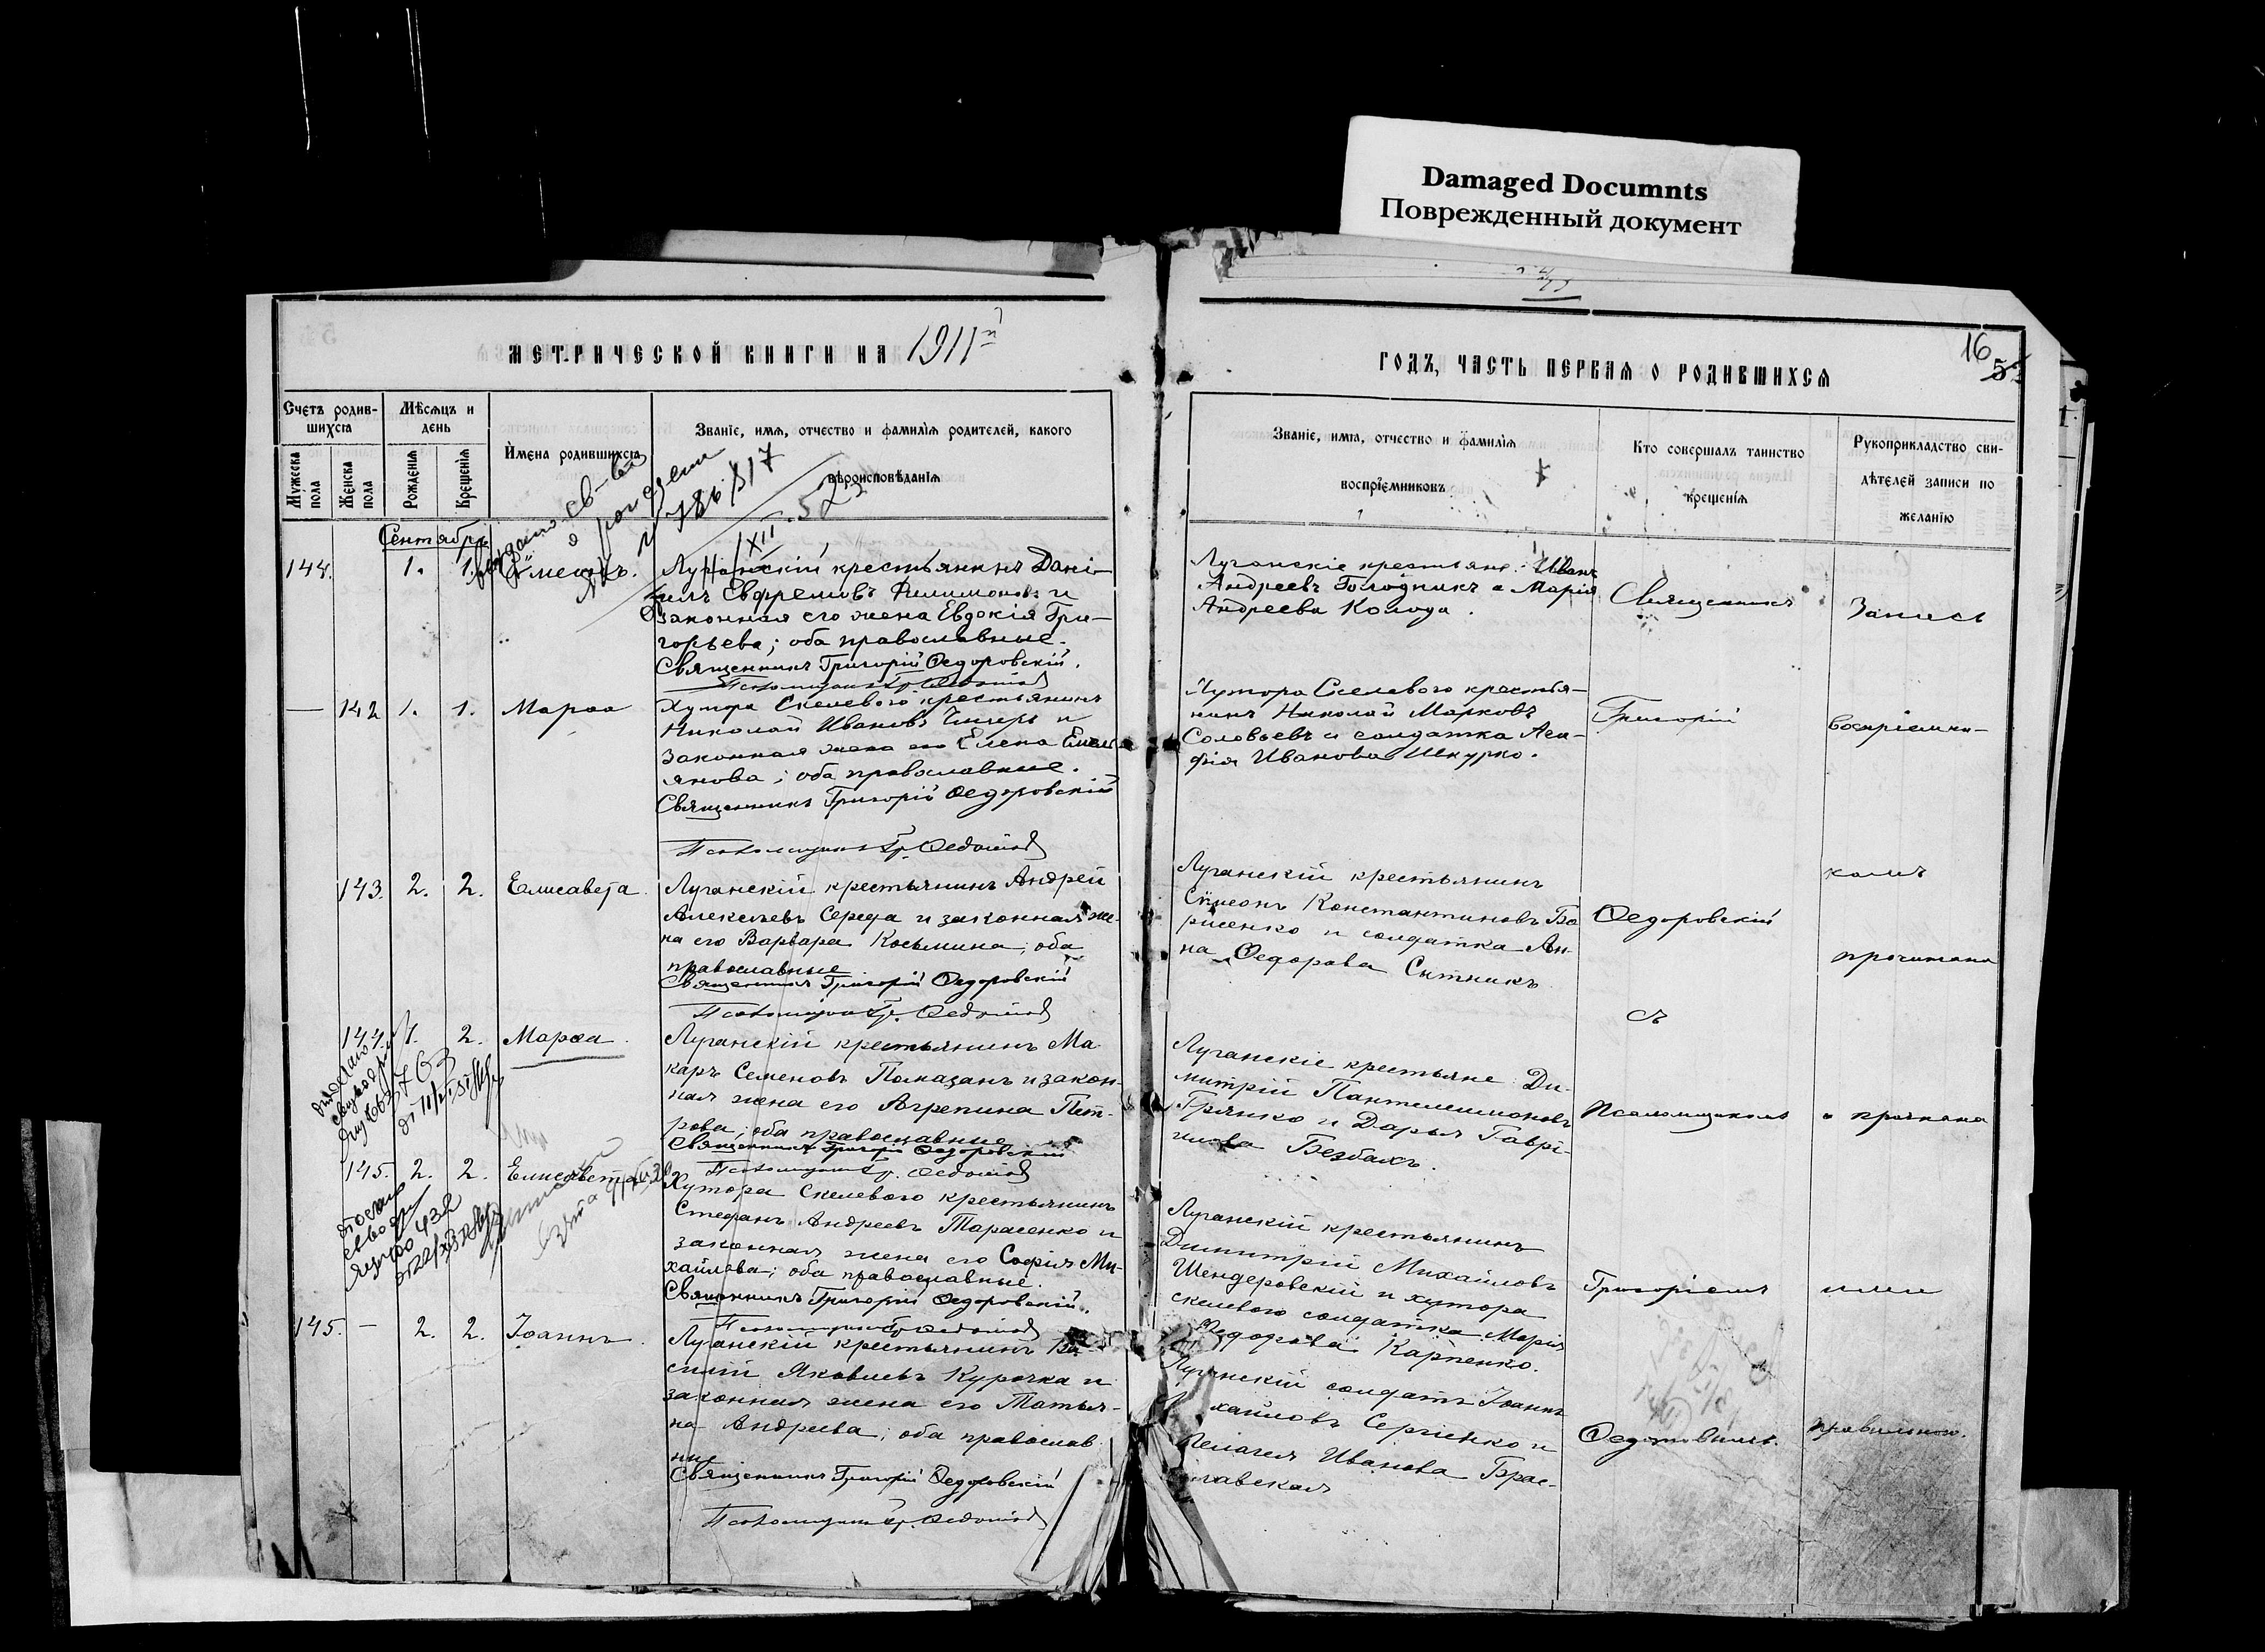 Damaged Documnts
Поврежденный документ
МЕТРИЧЕСКОЙ КНИГИ НА 1911й
ГОДЪ, ЧАСТЬ ПЕРВАЯ О РОДИВШИХСЯ
16
Счетъ родив-
шихся
Мѣсяцъ и
день
Имена родившихся
Званіе, имя, отчество и фамилія родителей, какого
вѣроисповѣданія
Мужеска пола
Женска пола
Рожденія
Крещенія
Званіе, имя, отчество и фамилія
воспріемниковъ
Кто совершалъ таинство
крещенія
Рукоприкладство сви-
дѣтелей записи по
желанію
Сентябрь
144. 1. 1.
Луганскій крестьянинъ Дані-
илъ Евфремовъ Филимоновъ и
законная его жена Евдокія Гри-
горьева; оба православные.
Священникъ Григорій Ѳедоровскій.
Луганскіе крестьяне: Иванъ
Андреевъ Голодникъ и Марія
Андреева Колода.
Священникъ
Запись
— 142 1. 1. Марѳа
Хутора Скелевого крестьянинъ
Николай Ивановъ и
законная жена его Елена Емель-
янова; оба православные.
Священникъ Григорій Ѳедоровскій
Псаломщикъ Гр. Ѳедотов
Хутора Скелевого крестья-
нинъ Николай Марковъ
Соловьевъ и солдатка Ага-
фія Иванова Шкурко.
Григорій
воспріемни-
143. 2. 2. Елисавета
Луганскій крестьянинъ Андрей
Алексѣевъ Середа и законная же-
на его Варвара Косьмина; оба
православные
Священникъ Григорій Ѳедоровскій
Псаломщикъ Гр. Ѳедотов
Луганскій крестьянинъ
Сѵмеонъ Константиновъ Бо
рисенко и солдатка Ан-
на Ѳедорова Сытникъ
Ѳедоровскій
камъ
прочитана
съ
144. 1. 2. Марѳа
Луганскій крестьянинъ Ма-
каръ Семеновъ Помазанъ и закон-
ная жена его Агрепина Пет-
рова; оба православные
Священникъ Григорій Ѳедоровскій
Псаломщикъ Гр. Ѳедотов
Луганскіе крестьяне: Ди-
митрій Пантелеимоновъ
Грянко и Дарья Гаврі-
илова Безбахъ.
Псаломщикомъ
и признана
145. 2. 2. Елисавета
Хутора Скелевого крестьянинъ
Стефанъ Андреевъ Тарасенко и
законная жена его Софія Ми-
хайлова; оба православные.
Священникъ Григорій Ѳедоровскій.
Псаломщикъ Гр. Ѳедотов
Луганскій крестьянинъ
Димитрій Михайловъ
Шендеровскій и хутора
Скелевого солдатка Марія
Ѳедорова Карпенко.
Григоріемъ
ими
145. — 2. 2. Іоаннъ
Луганскій крестьянинъ Ва-
силій Яковлевъ Курочка и
законная жена его Татья-
на Андреева; оба православ
ные
Священникъ Григорій Ѳедоровскій
Псаломщикъ Гр. Ѳедотов
Луганскій солдатъ Іоаннъ
хайловъ Сергіенко и
Пелагея Иванова Брас-
лавская
Ѳедотовымъ.
правильною.